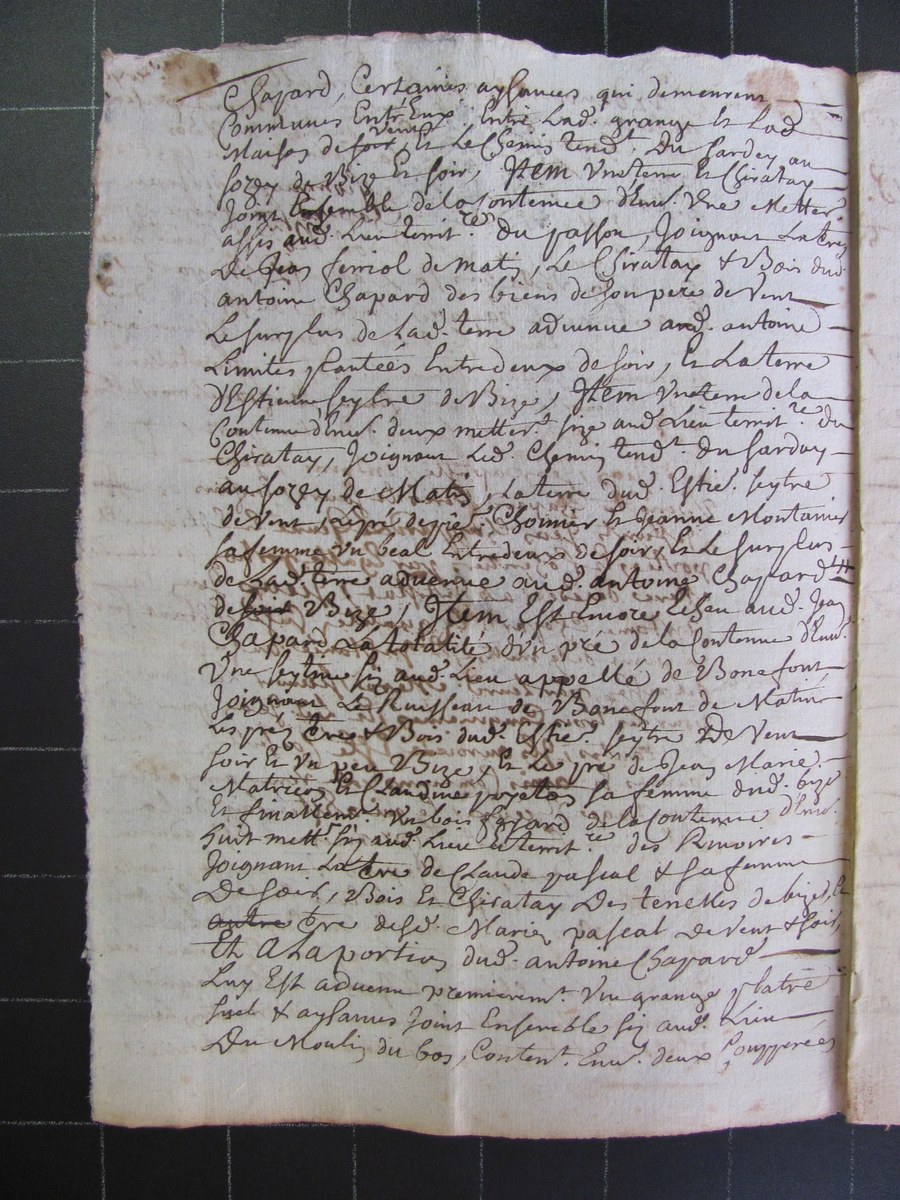 Chapard, Certaines aysances qui demeurent
Communes Entr'Eux, Entre Lad. grange Et Lad.
Maison de soir, vent Et Le Chemin tend.t du Sardey au
sozey de Bize Et soir, Jtem Vne terre Et Chiratay
Joint Ensemble de la Contenue d'Env. Vne Metter.
assis aud. Lieu territ.re du passou, Joignant La tre
de Jean ferriol de matin, Le Chiratay & Bois dud.
antoine Chapard des biens de son pere de vent
Le surplus de Lad. terre aduenue aud. antoine
Limites plantées Entredeux de soir, Et La terre
d'Estienne seytre de Bize, Jtem Vne terre de la
Contenue d'Env. deux metter.s size aud. Lieu territ.re du
Chiratay, Joignant Led. Chemin tend.t du Sarday
au sozey de Matin, La terre dud. Estie. seytre
de vent, Le pré de pie. Choinier Et Jeanne Montanier
sa femme vn beal Entredeux de soir, Et Le surplus
de Lad. terre aduenue aud. antoine Chapard
de soir Bize, Jtem Est Encore Echeu aud. Jean
Chapard La totalité d'vn pré de la Contenue d'Env.
Vne seytine siz aud. Lieu appellé de Bonefont
Joignant Le Ruisseau de Bonefont de Matin
Les prés tres & Bois dud. Estie. seytre de Vent
soir Et vn peu Bize, Et Le pré de Jean Marie
Matricon Et Claudine poyeton sa femme dud. bize
Et finallem.t vn bois fayard de la Contenue d'Env.
huit mett.s siz aud. Lieu et territ.re des Rivoires
Joignant La tre de Claude pascal & sa femme
de soir, Bois Et Chiratay des tenelles de bize, Et
autre tre desd. Mariés pascal de vent & soir,
Et A La portion dud. antoine Chapard
Luy Est aduenu premierem.t Vne grange platre
suel & aysances Joint Ensemble siz aud. Lieu
Du Moulin du bos, Conten.t Env. deux Coupperées